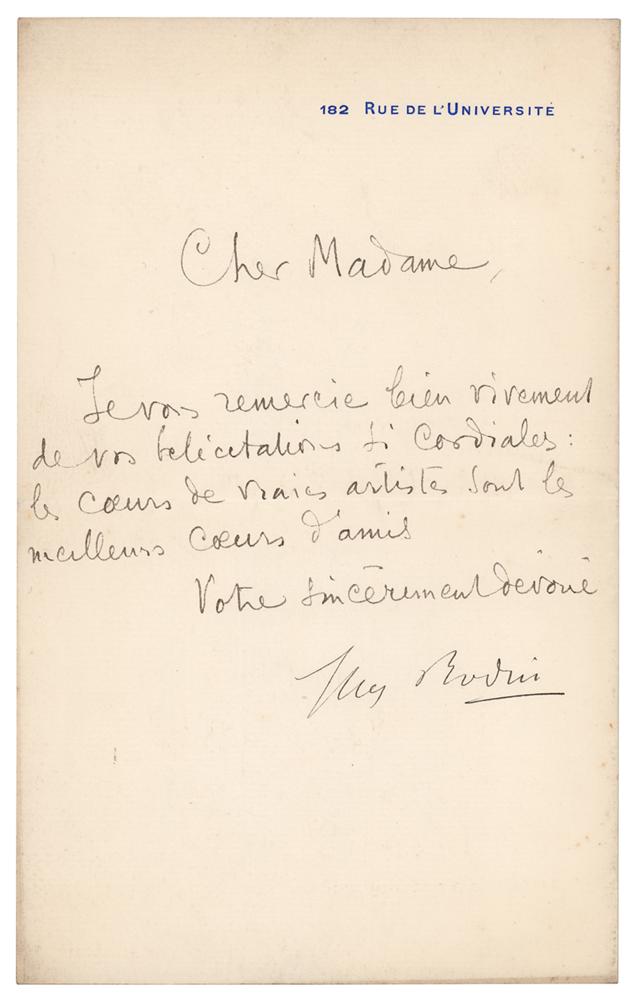 182 RUE DE L'UNIVERSITÉ
Cher Madame,
Je vous remercie bien vivement
de vos félicitations si cordiales :
les cœurs de vraies artistes sont les
meilleurs cœurs d'amis
Votre sincèrement dévoué
Aug Rodin